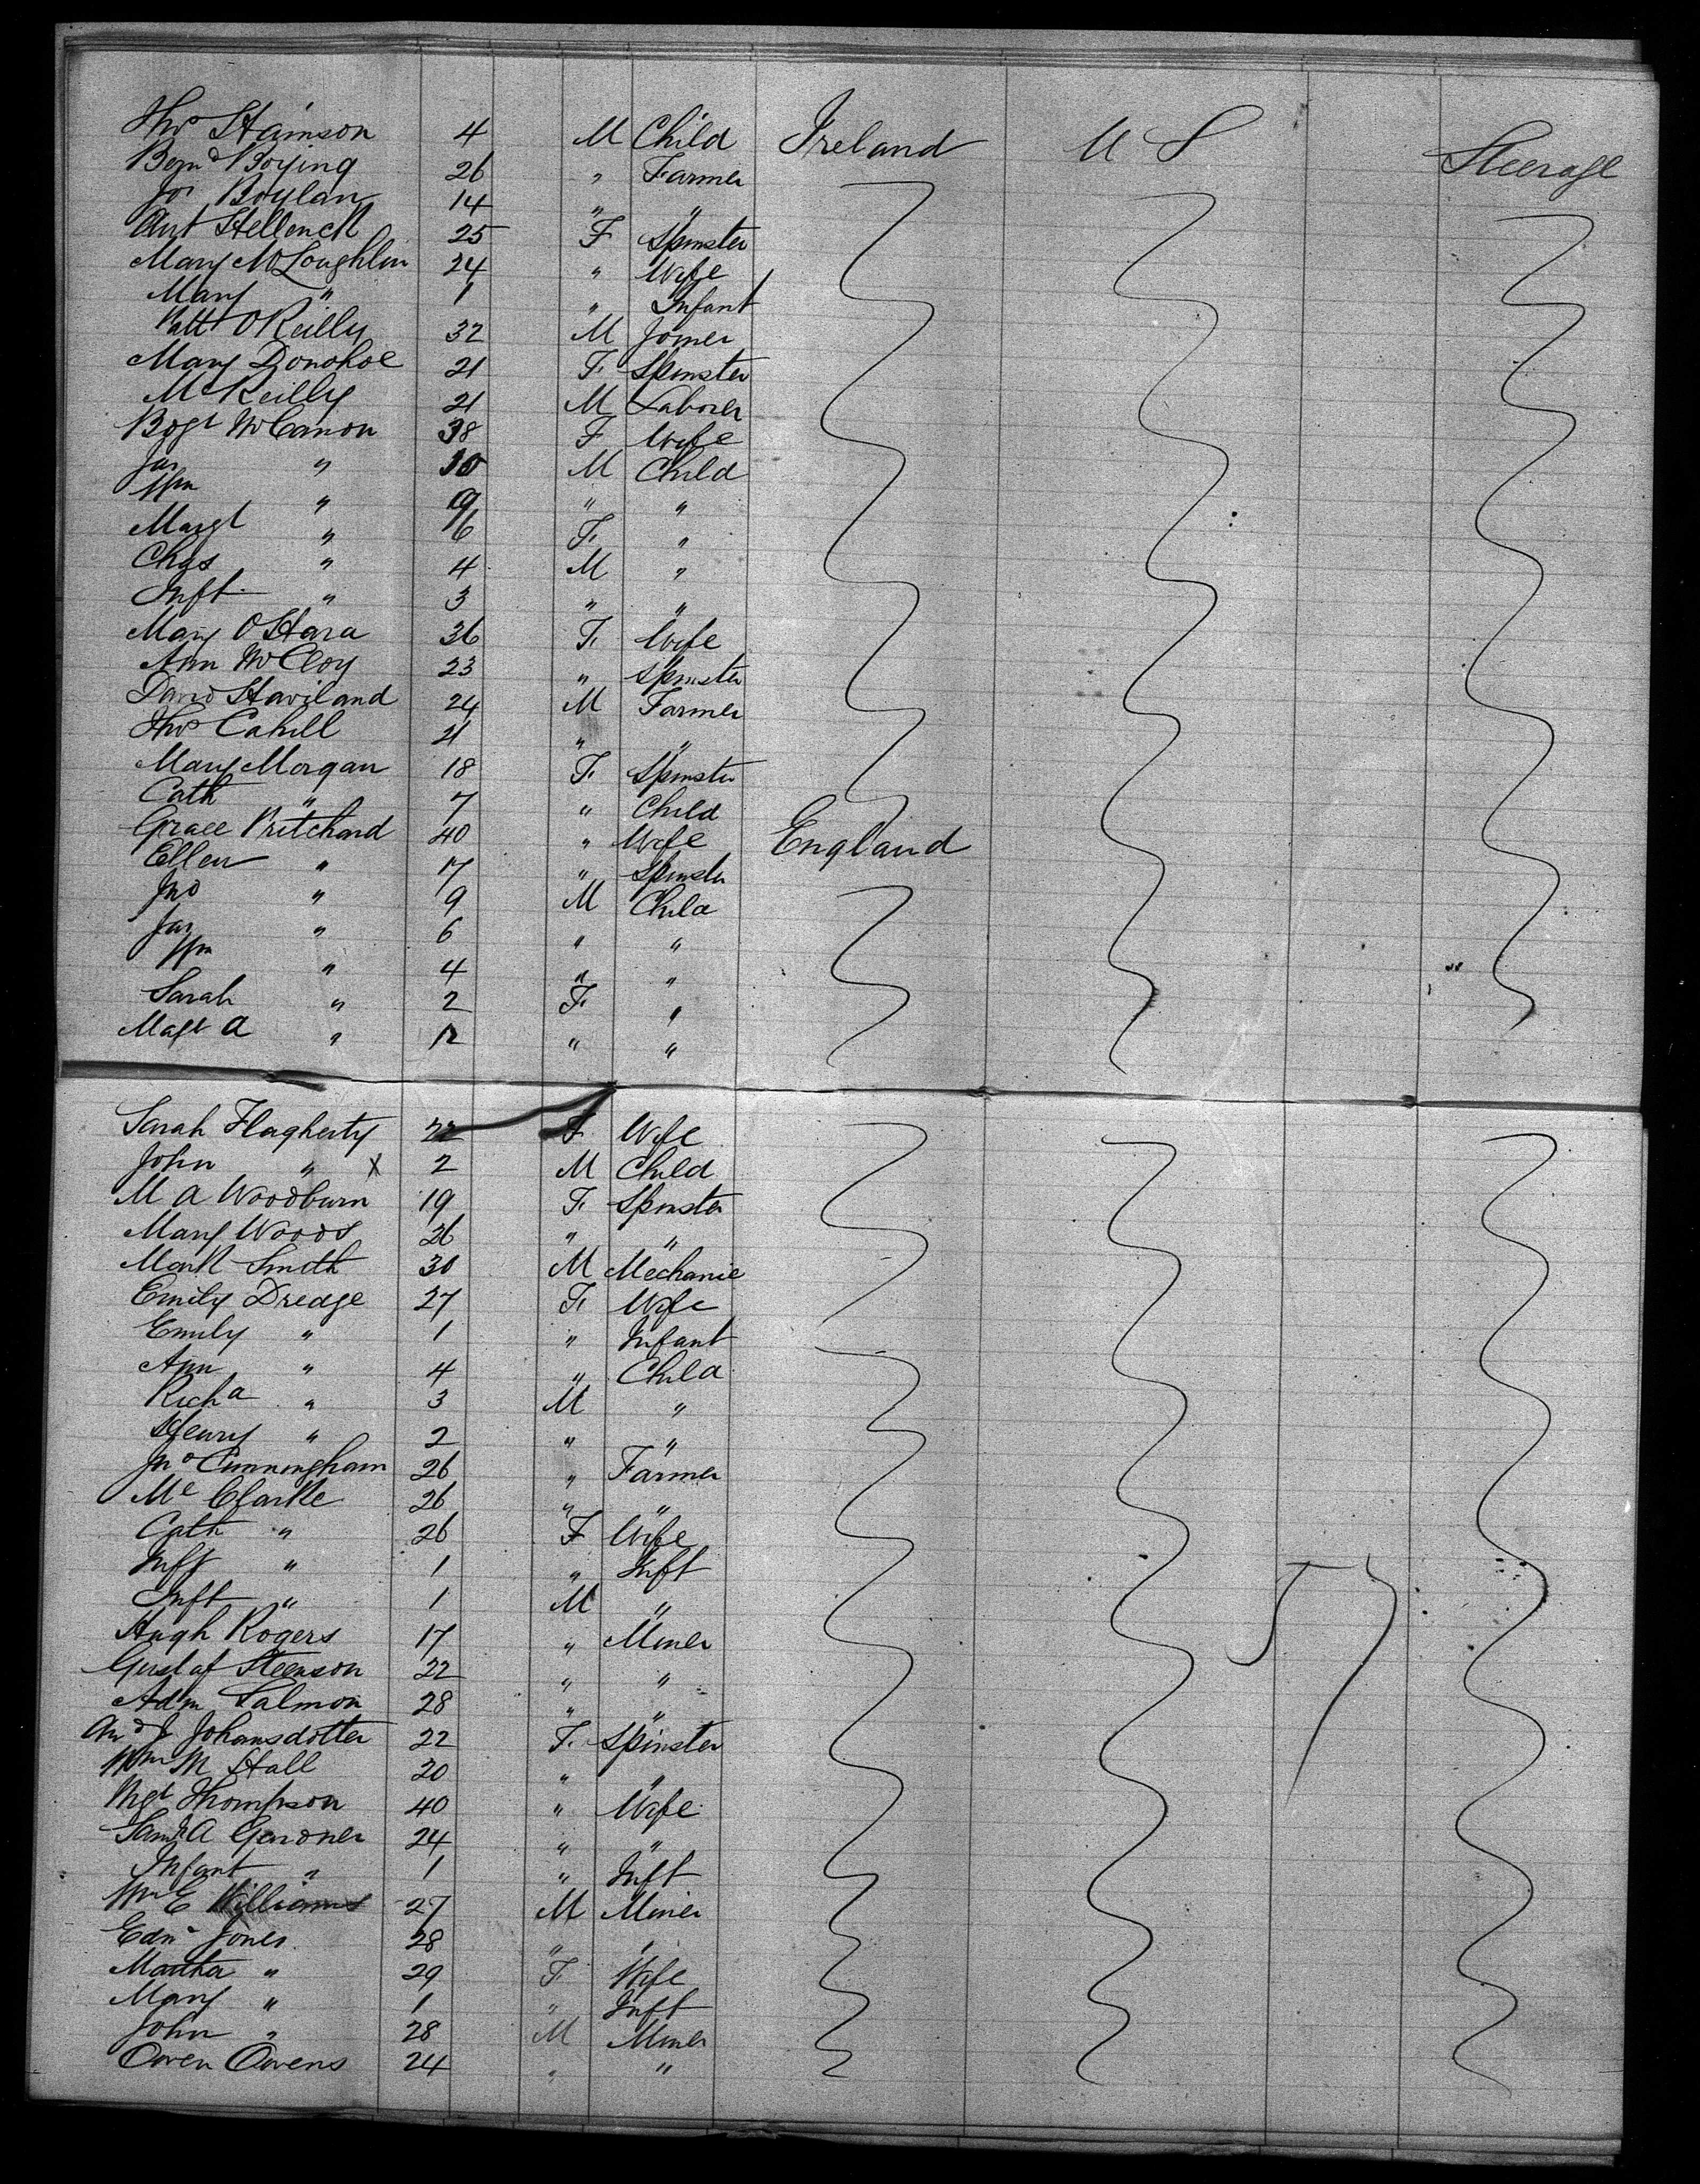 Thos Hamson 4 M Child Ireland U S Steerage
Bernd Boying 26 " Farmer
Jos Boylan 14 " "
Ant Hellenck 25 F Spinster
Mary McLoughlin 24 " Wife
Mary " 1 " Infant
Patt O'Reilly 32 M Joiner
Mary Donohoe 21 F Spinster
Mc Reilly 21 M Laborer
Bogt McCanon 38 F Wife
Jas " 10 M Child
Wm " 9 " "
Margt " 6 F "
Chas " 4 M "
Inft " 3 " "
Mary O'Hara 36 F Wife
Ann McCloy 23 " Spinster
David Haviland 24 M Farmer
Thos Cahill 21 " "
Mary Morgan 18 F Spinster
Cath " 7 " Child
Grace Pritchard 40 " Wife England
Ellen " 17 " Spinster
Jno " 9 M Child
Jas " 6 " "
Wm " 4 " "
Sarah " 2 F "
Magt A " 12 " "
Sarah Flagherty 22 F Wife
John " X 2 M Child
M A Woodburn 19 F Spinster
Mary Woods 26 " "
Mark Smith 30 M Mechanic
Emily Dredge 27 F Wife
Emily " 1 " Infant
Ann " 4 " Child
Richd " 3 M "
Henry " 2 " "
Jno Cunningham 26 " Farmer
Mc Clarke 26 " "
Cath " 26 F Wife
Inft " 1 " Inft
Inft " 1 M "
Hugh Rogers 17 " Miner
Gustaf Steenson 22 " "
Adm Salmon 28 " "
And J Johansdotter 22 F Spinster
Wm M Hall 20 " "
Mgt Thompson 40 " Wife
Saml A Gardner 24 " "
Infant " 1 " Inft
Wm E Williams 27 M Miner
Edn Jones 28 " "
Martha " 29 F Wife
Mary " 1 " Inft
John " 28 M Miner
Owen Owens 24 " "
57